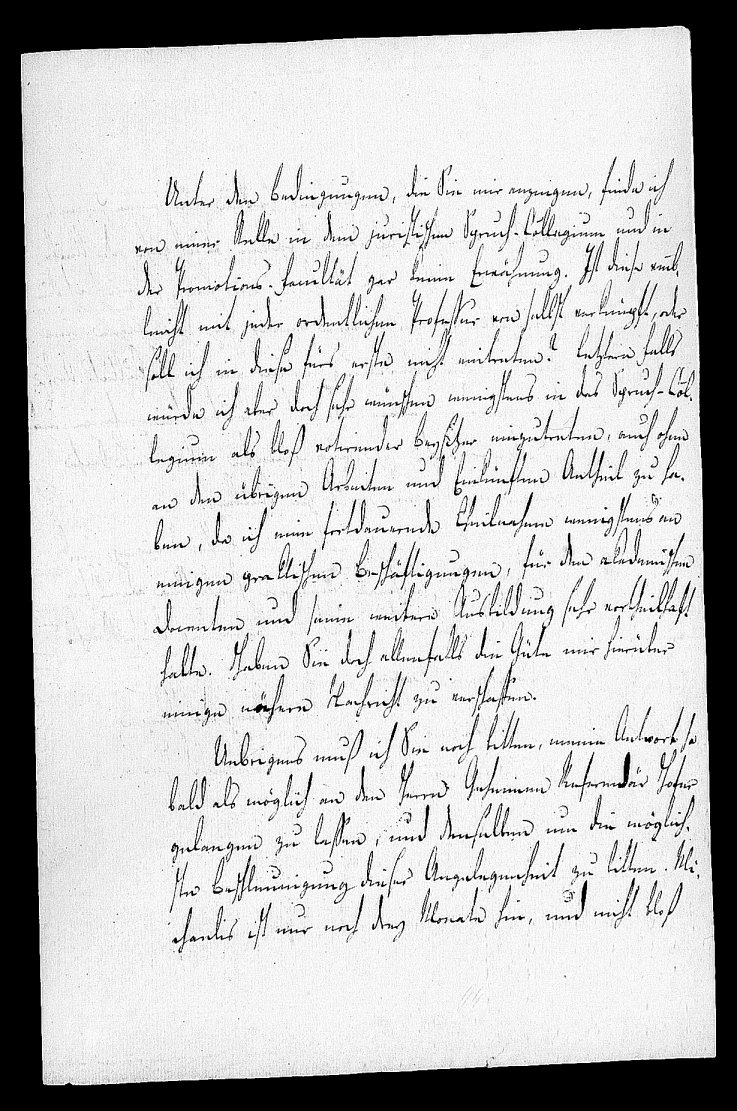 Unter den Bedingungen, die Sie mir anzeigen, finde ich
von einer Stelle in dem juristischen Spruch-Collegium und in
der Promotions-Facultät gar keine Erwähnung. Ist diese viel-
leicht mit jeder ordentlichen Professur von selbst verknüpft, oder
soll ich in diese fürs erste nicht eintreten? Letztern Falls
würde ich aber doch sehr wünschen wenigstens in das Spruch-Col-
legium als bloß votirender Beysitzer einzutreten, auch ohne
an den übrigen Arbeiten und Einkünften Antheil zu ha-
ben, da ich eine fortdauernde Theilnahme wenigstens an
einigen practischen Beschäftigungen, für den akademischen
Docenten und seine weitere Ausbildung sehr vortheilhaft
halte. Haben Sie doch allenfalls die Güte mir hierüber
einige nähere Nachricht zu verschaffen.
Uebrigens muß ich Sie noch bitten, meine Antwort so
bald als möglich an den Herrn Geheimen Referendär Hofer
gelangen zu lassen, und denselben um die möglich-
ste Beschleunigung dieser Angelegenheit zu bitten. Mi-
chaelis ist nur noch drey Monate hin, und nicht bloß